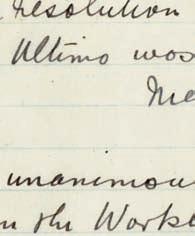 resolution
Ultimo was
Me
unanimou
n the Works